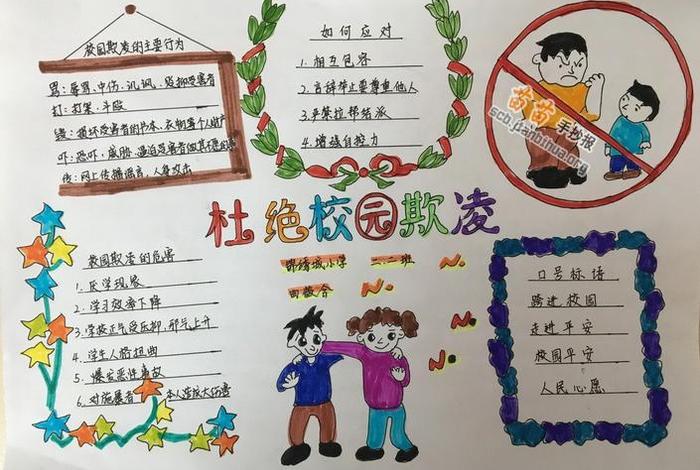 校园欺凌的主要行为
骂：辱骂、中伤、讥讽、贬抑受害者
打：打架、斗殴
毁：损坏受害者的书本、衣物等个人财产
吓：恐吓、威胁、逼迫受害者做其不愿的事
传：网上传播谣言、人身攻击
如何应对
1.相互包容
2.言辞举止要尊重他人
3.严禁拉帮结派
4.增强自控力
苗苗手抄报
scb.jianbihua.org
杜绝校园欺凌
锦绣城小学 二、二班
校园欺凌的危害
1.厌学现象
2.学习效率下降
3.学校正气受压抑,邪气上升
4.学生人格扭曲
5.爆发恶性事故
6.对施暴者 本人造成大伤害
No.
No.
No.
No.
口号标语
跨进校园
走进平安
校园平安
人民心愿